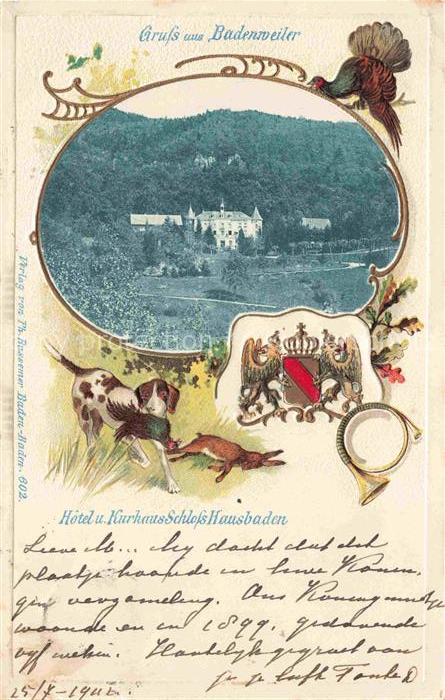 Gruß aus Badenweiler
Verlag von Th. Hussemer Baden-Baden. 602.
Hôtel u. Kurhaus Schloß Hausbaden
Lieve M... Mij dacht dat dit
plaatje hoorde in Uwe
verzameling. Ons
woonde en in 1899, gedurende
vijf weken. Hartelijk gegroet van
je je liefh Tante D
25/X-1902.